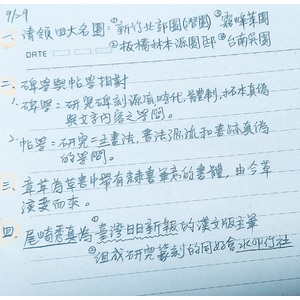 9/29
一、清領四大名園：①新竹北郭園(潛園) ②霧峰萊園
DATE ③板橋林本源園邸 ④台南吳園
二、碑學與帖學相對
1、碑學：研究碑刻源流時代、體制、拓本真偽
與文字內容之學問。
2、帖學：研究二王書法，書法源流和書蹟真偽
的學問。
三、章草為草書中帶有隸書筆意的書體，由今草
演變而來。
四、尾崎秀真為①臺灣日日新報的漢文版主筆
②組成研究篆刻的同好會水印社